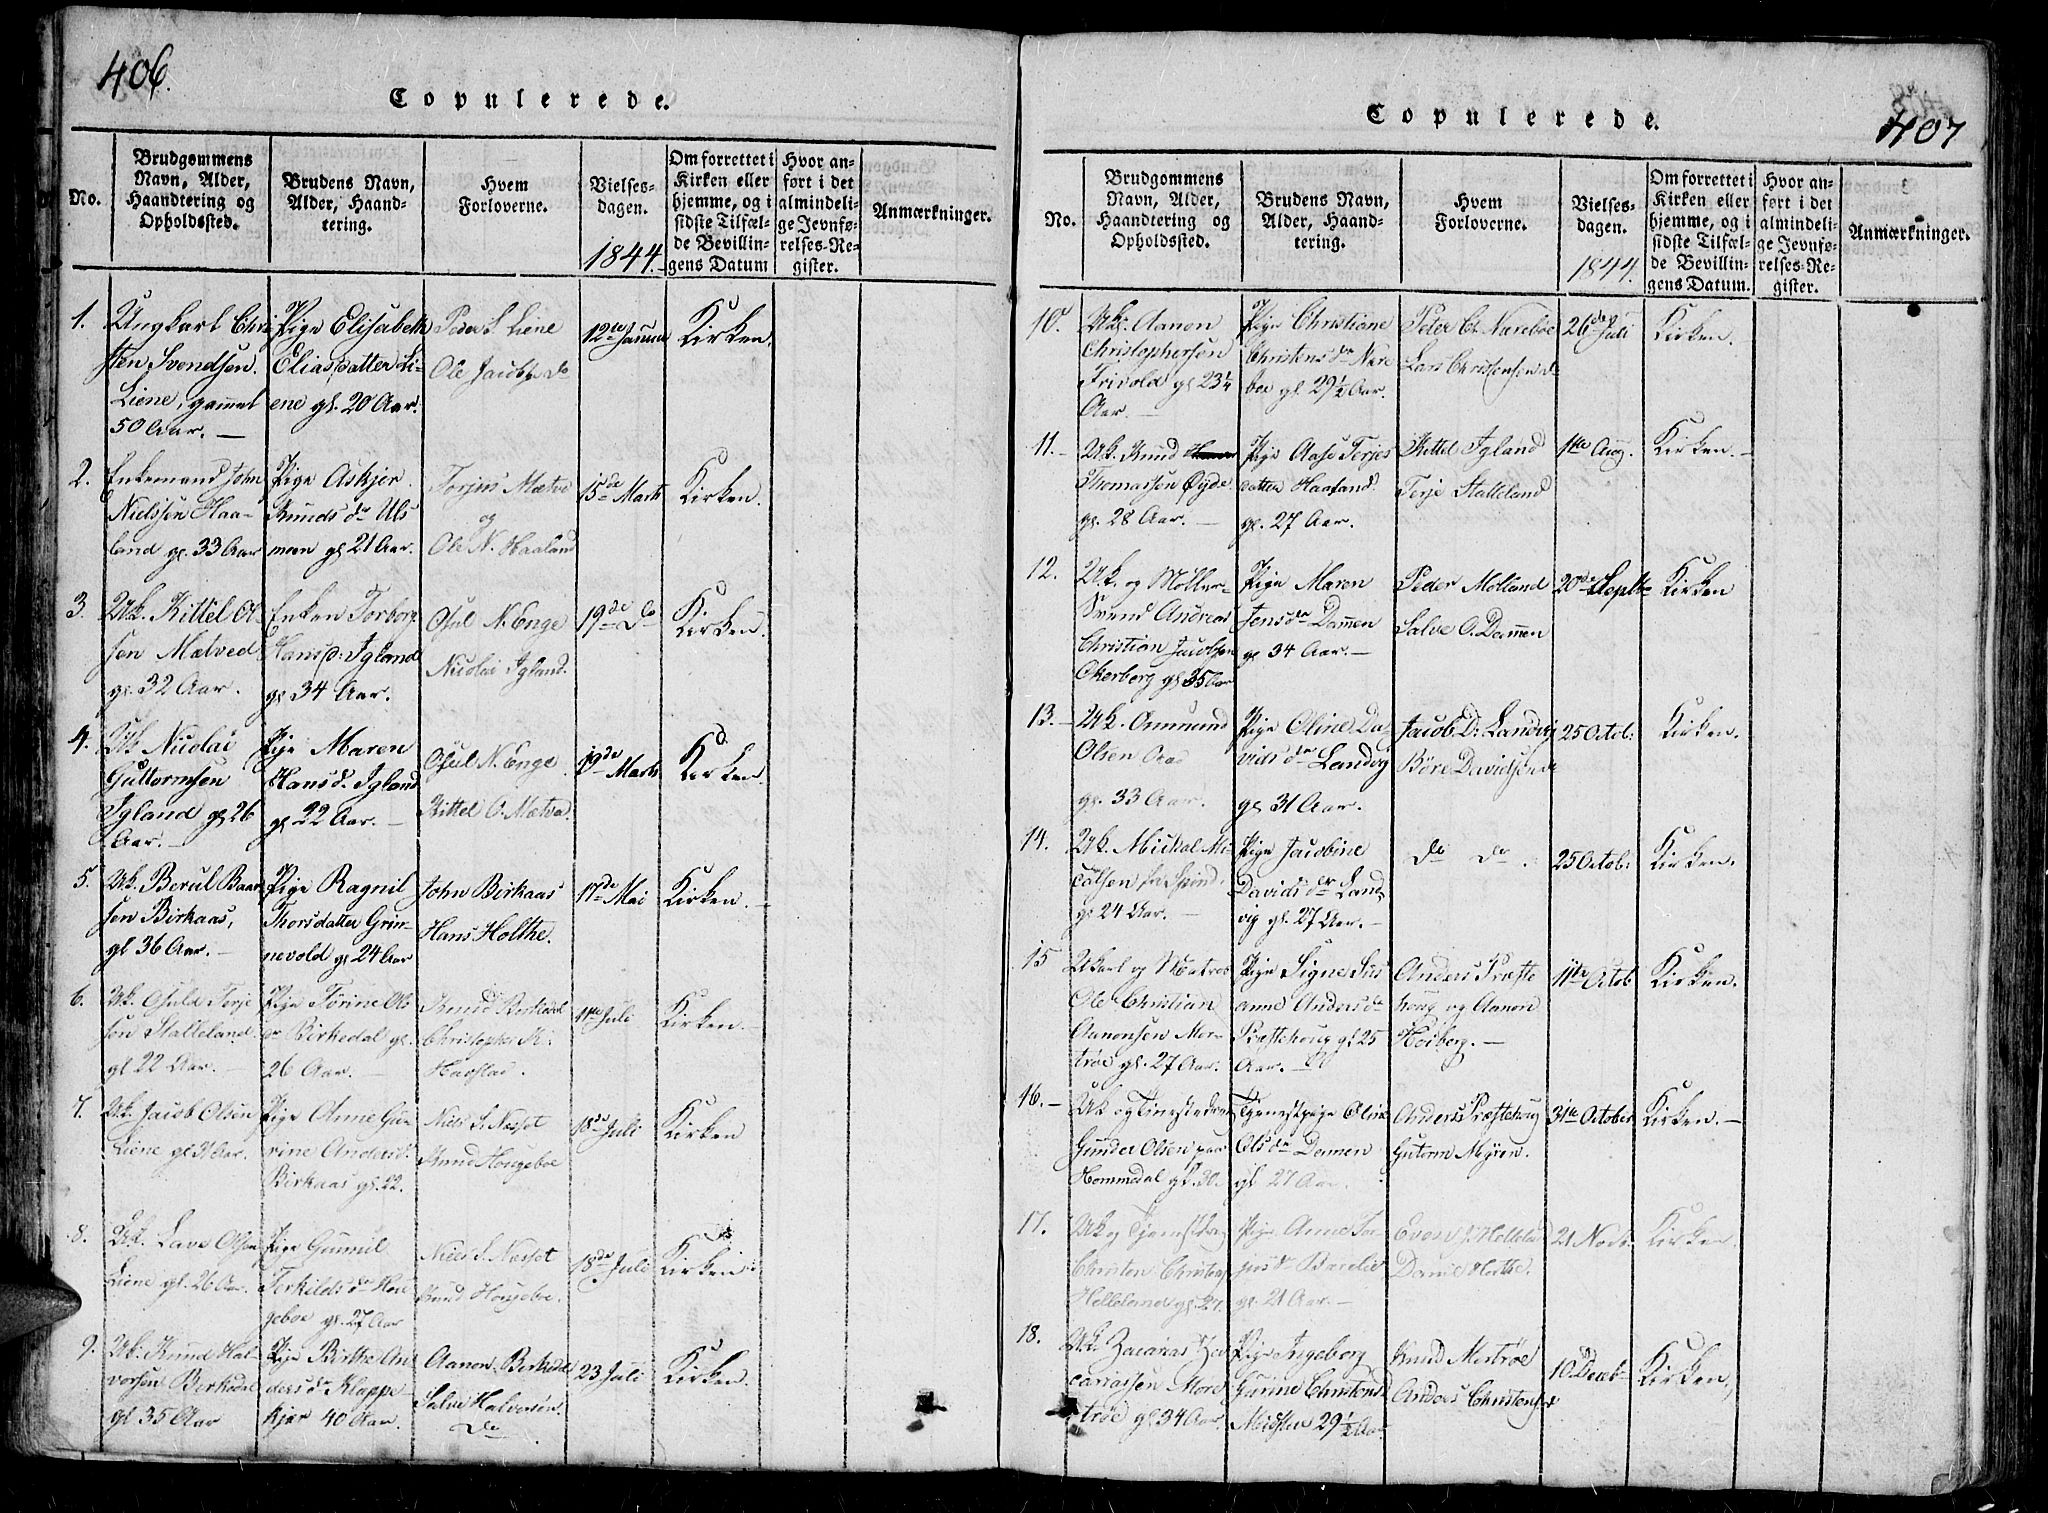 406.
Copulerede.
No.
Brudgommens
Navn, Alder,
Haandtering og
Opholdssted.
Brudens Navn,
Alder, Haand-
tering.
Hvem
Forloverne.
Vielses-
dagen.
1844.
Om forrettet i
Kirken eller
hjemme, og i
sidste Tilfæl-
de Bevillin-
gens Datum
Hvor an-
ført i det
almindeli-
ge Jevnfø-
relses-Re-
gister.
Anmærkninger.
1.
Ungkarl Chri
sten Svendsen
Liene, gammel
50 Aar. —
Pige Elisabeth
Eliasdatter Li-
ene gl. 20 Aar.
Peder S. Liene
Ole Jacobs. do
12te Januar
Kirken.
2.
Enkemand John
Nielssen Haa-
land gl. 33 Aar
Pige Askjer
Knuds dr Uls
moen gl 21 Aar.
Torjus Mætve
og
Ole N. Haaland
15de Marts
Kirken.
3.
Uk. Kittel O.
sen Mætved
gl. 32 Aar.
Enken Torborg
Hans d: Igland
gl 34 Aar.
Osul N. Enge
Nicolai Igland.
19de do
Kirken.
4.
Uk Nicolai
Guttormsen
Igland gl 26
Aar. —
Pige Maren
Hans d. Igland
gl 22 Aar. —
Osul N. Enge
Kittel O. Mætve.
19de Marts
Kirken.
5.
Uk. Berul Baar
sen Birkaas,
gl 36 Aar. —
Pige Ragnil
Thorsdatter Grin-
nevold gl 24 Aar
John Birkaas
Hans Holthe.
17de Mai
Kirken. —
6.
Uk. Osuld Terje
sen Stalleland
gl 22 Aar. —
Pige Tørine Ols
dr Birkedal gl.
26 Aar. —
Knud Birkedal
Christopher K.
Havstad.
11te Juli
Kirken.
7.
Uk. Jacob Olsen
Liene gl 31 Aar.
Pige Anne Gu-
rine Anders d.
Birkaas gl. 22.
Niels S. Nesset
Knud Hougeboe
18de Juli
Kirken
8.
Uk. Lave Olsen
Liene gl. 26 Aar.
Pige Gunnil
Terkilds dr Hou
geboe gl. 27 Aar
Niels S. Nesset
Knud Hougeboe.
18de Juli
Kirken
9.
Uk. Knud Hal-
vorsen Berkedal
gl 35 Aar
Pige Birthe An
ders dr Kleppe-
kjær 40 Aar.
Aanon Birkedal
Salve Halvorsen
do
23 Juli
Kirken.
407
Copulerede.
No.
Brudgommens
Navn, Alder,
Haandtering og
Opholdssted.
Brudens Navn,
Alder, Haand-
tering.
Hvem
Forloverne.
Vielses-
dagen.
1844.
Om forrettet i
Kirken eller
hjemme, og i
sidste Tilfæl-
de Bevillin-
gens Datum.
Hvor an-
ført i det
almindeli-
ge Jevnfø-
relses-Re-
gister.
Anmærkninger.
10.
Uk. Aanon
Christophersen
Trivold gl 23¼
Aar. —
Pige Christiane
Christens dr Nare
boe gl. 29½ Aar.
Peter Ch. Nareboe
Lars Christensen do
26de Juli
Kirken.
11. —
Uk. Knud
Thomassen Øyde
gl. 28 Aar. —
Pige Aase Terjes
datter Haaland
gl. 27 Aar.
Kittel Igland
Terje Stalleland
1ste Aug.
Kirken. —
12.
Uk. og Møller
Svend Andreas
Christian Jacobsen
Okerberg gl 35 Aar
Pige Maren
Jens dr Dømmen
gl 34 Aar. —
Peder Molland
Salve O. Dømmen
20de Septbr
Kirken
13. —
Uk. Ommund
Olsen Aas
gl. 33 Aar.
Pige Oline Da-
vids dr Landvig
gl 31 Aar.
Jacob D: Landvig
Børe Davidsen do
25 Octob:
Kirken.
14.
Uk. Mickal Mi-
calsen fr Spind
gl 24 Aar. —
Pige Jacobine
Davids dr Land
vig gl. 27 Aar. —
do do
25 Octob:
Kirken.
15
Ukarl og Matros
Ole Christian
Aanonsen Mor-
trøe gl. 27 Aar.
Pige Signe Sus
anne Anders dr
Præstehoug gl 25
Aar. —
Anders Præste
houg og Aanon
Høiberg. —
11te Octob
Kirken.
16. —
Gunder Olsen paa
Hommedal gl. 30.
Tjenestpige Oline
Ols dr Dømmen
gl 27 Aar.
Anders Præstehoug
Gutorm Myren.
31te October
Kirken. —
17.
Uk og Tjenestdreng
Christen Christens
Helleland gl. 27.
Pige Anne Tor-
jus dr Barelie
gl. 21 Aar. —
Even J. Hellela
Daniel Holthe.
21 Nov.
Kirken.
18.
Uk. Zacarias Za
cariassen More
trøe gl 34 Aar.
Pige Ingeborg
Gurine Christens
29½ Aar
Knud Mortrøe
Anders Christensen
10. Decb
Kirken.